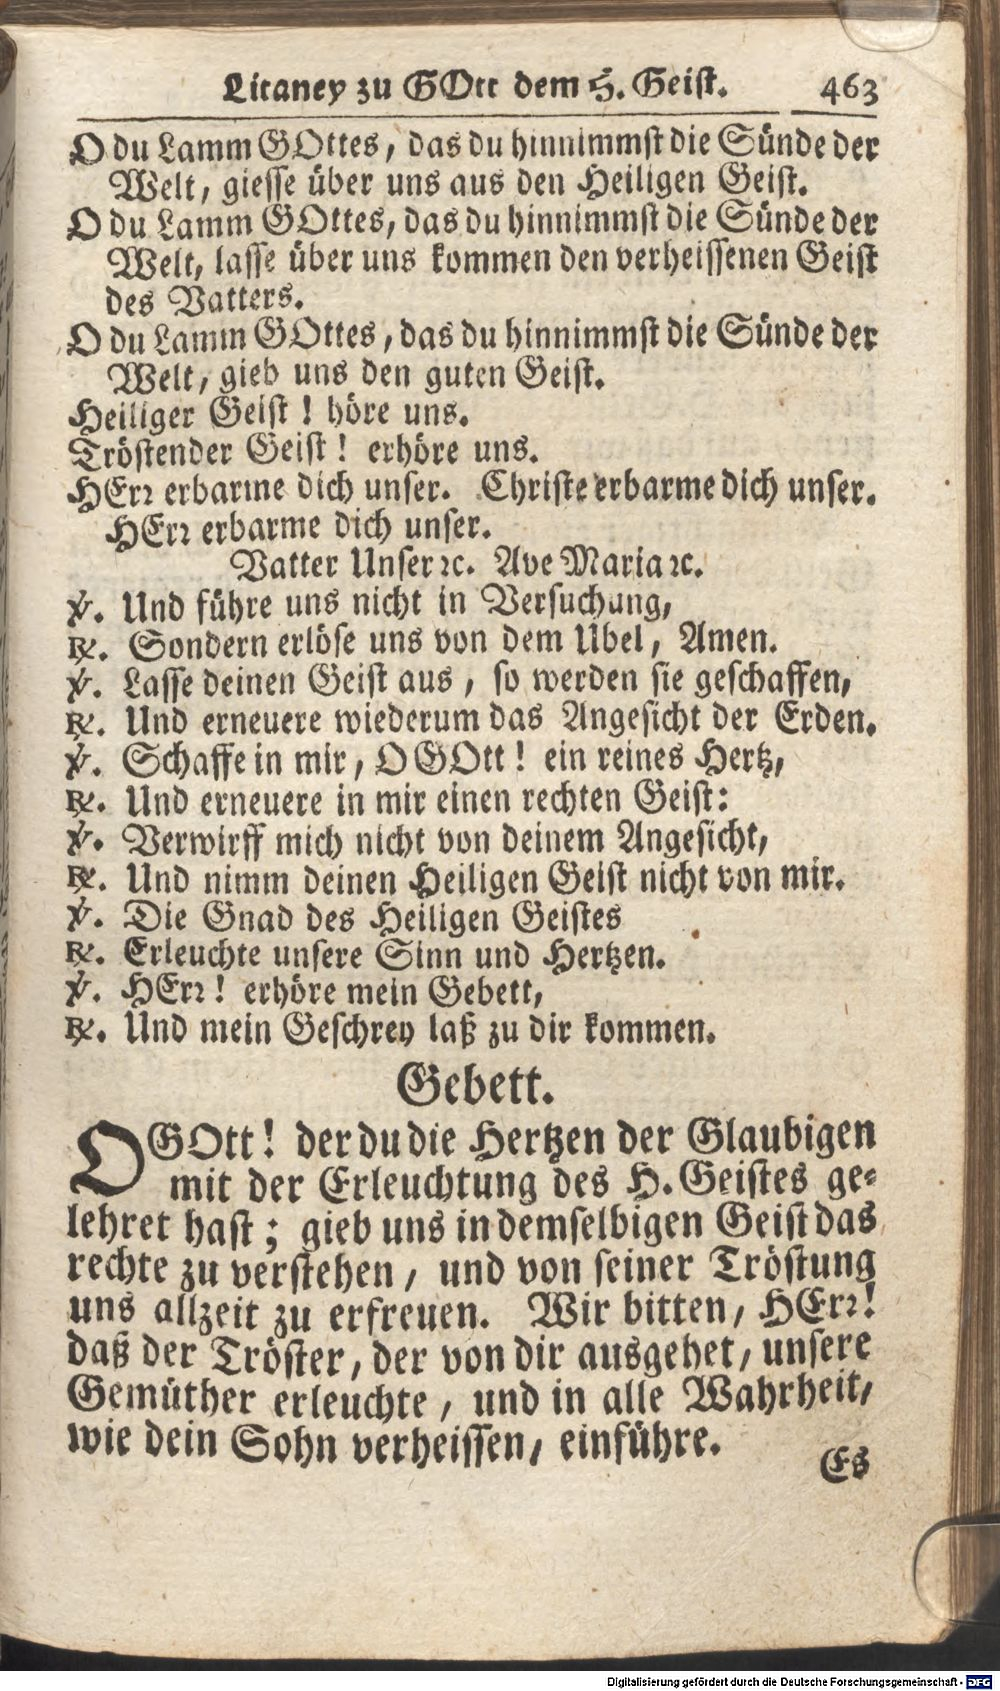 Litaney zu GOtt dem H. Geist. 463
O du Lamm GOttes, das du hinnimmst die Sünde der
Welt, giesse über uns aus den Heiligen Geist.
O du Lamm GOttes, das du hinnimmst die Sünde der
Welt, lasse über uns kommen den verheissenen Geist
des Vatters.
O du Lamm GOttes, das du hinnimmst die Sünde der
Welt, gieb uns den guten Geist.
Heiliger Geist ! höre uns.
Tröstender Geist ! erhöre uns.
HErr erbarme dich unser. Christe erbarme dich unser.
HErr erbarme dich unser.
Vatter Unser ꝛc. Ave Maria ꝛc.
℣. Und führe uns nicht in Versuchung,
℟. Sondern erlöse uns von dem Ubel, Amen.
℣. Lasse deinen Geist aus, so werden sie geschaffen,
℟. Und erneuere wiederum das Angesicht der Erden.
℣. Schaffe in mir, O GOtt ! ein reines Hertz,
℟. Und erneuere in mir einen rechten Geist:
℣. Verwirff mich nicht von deinem Angesicht,
℟. Und nimm deinen Heiligen Geist nicht von mir.
℣. Die Gnad des Heiligen Geistes
℟. Erleuchte unsere Sinn und Hertzen.
℣. HErr ! erhöre mein Gebett,
℟. Und mein Geschrey laß zu dir kommen.
Gebett.
O GOtt ! der du die Hertzen der Glaubigen
mit der Erleuchtung des H. Geistes ge-
lehret hast ; gieb uns in demselbigen Geist das
rechte zu verstehen, und von seiner Tröstung
uns allzeit zu erfreuen. Wir bitten, HErr!
daß der Tröster, der von dir ausgehet, unsere
Gemüther erleuchte, und in alle Wahrheit,
wie dein Sohn verheissen, einführe.
Es
Digitalisierung gefördert durch die Deutsche Forschungsgemeinschaft - DFG